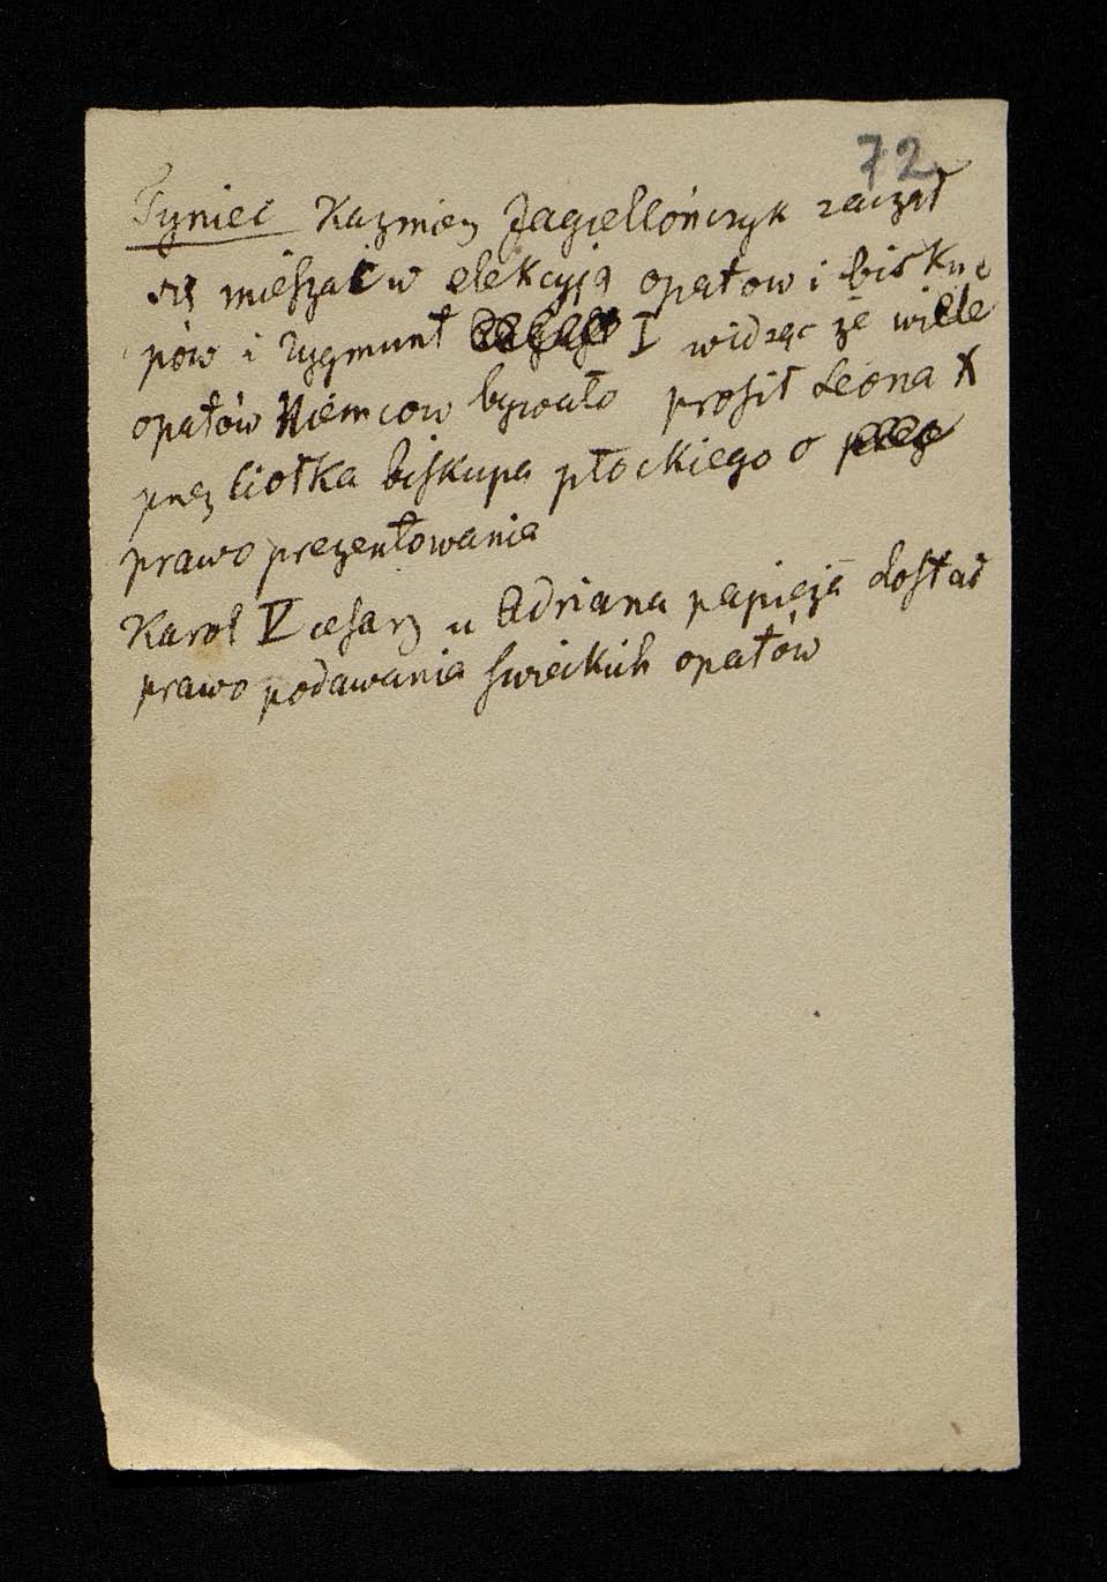 72
Tyniec Kazmierz Jagiellończyk zaczął
się mieszać w elekcyją opatow i bisku
pów i Zygmunt I widząc że wiele
opatów Niemcow bywało prosił Leona X
przez Ciołka biskupa płockiego o
prawo prezentowania
Karol V cesarz u Adriana papieża dostał
prawo podawania swieckich opatów